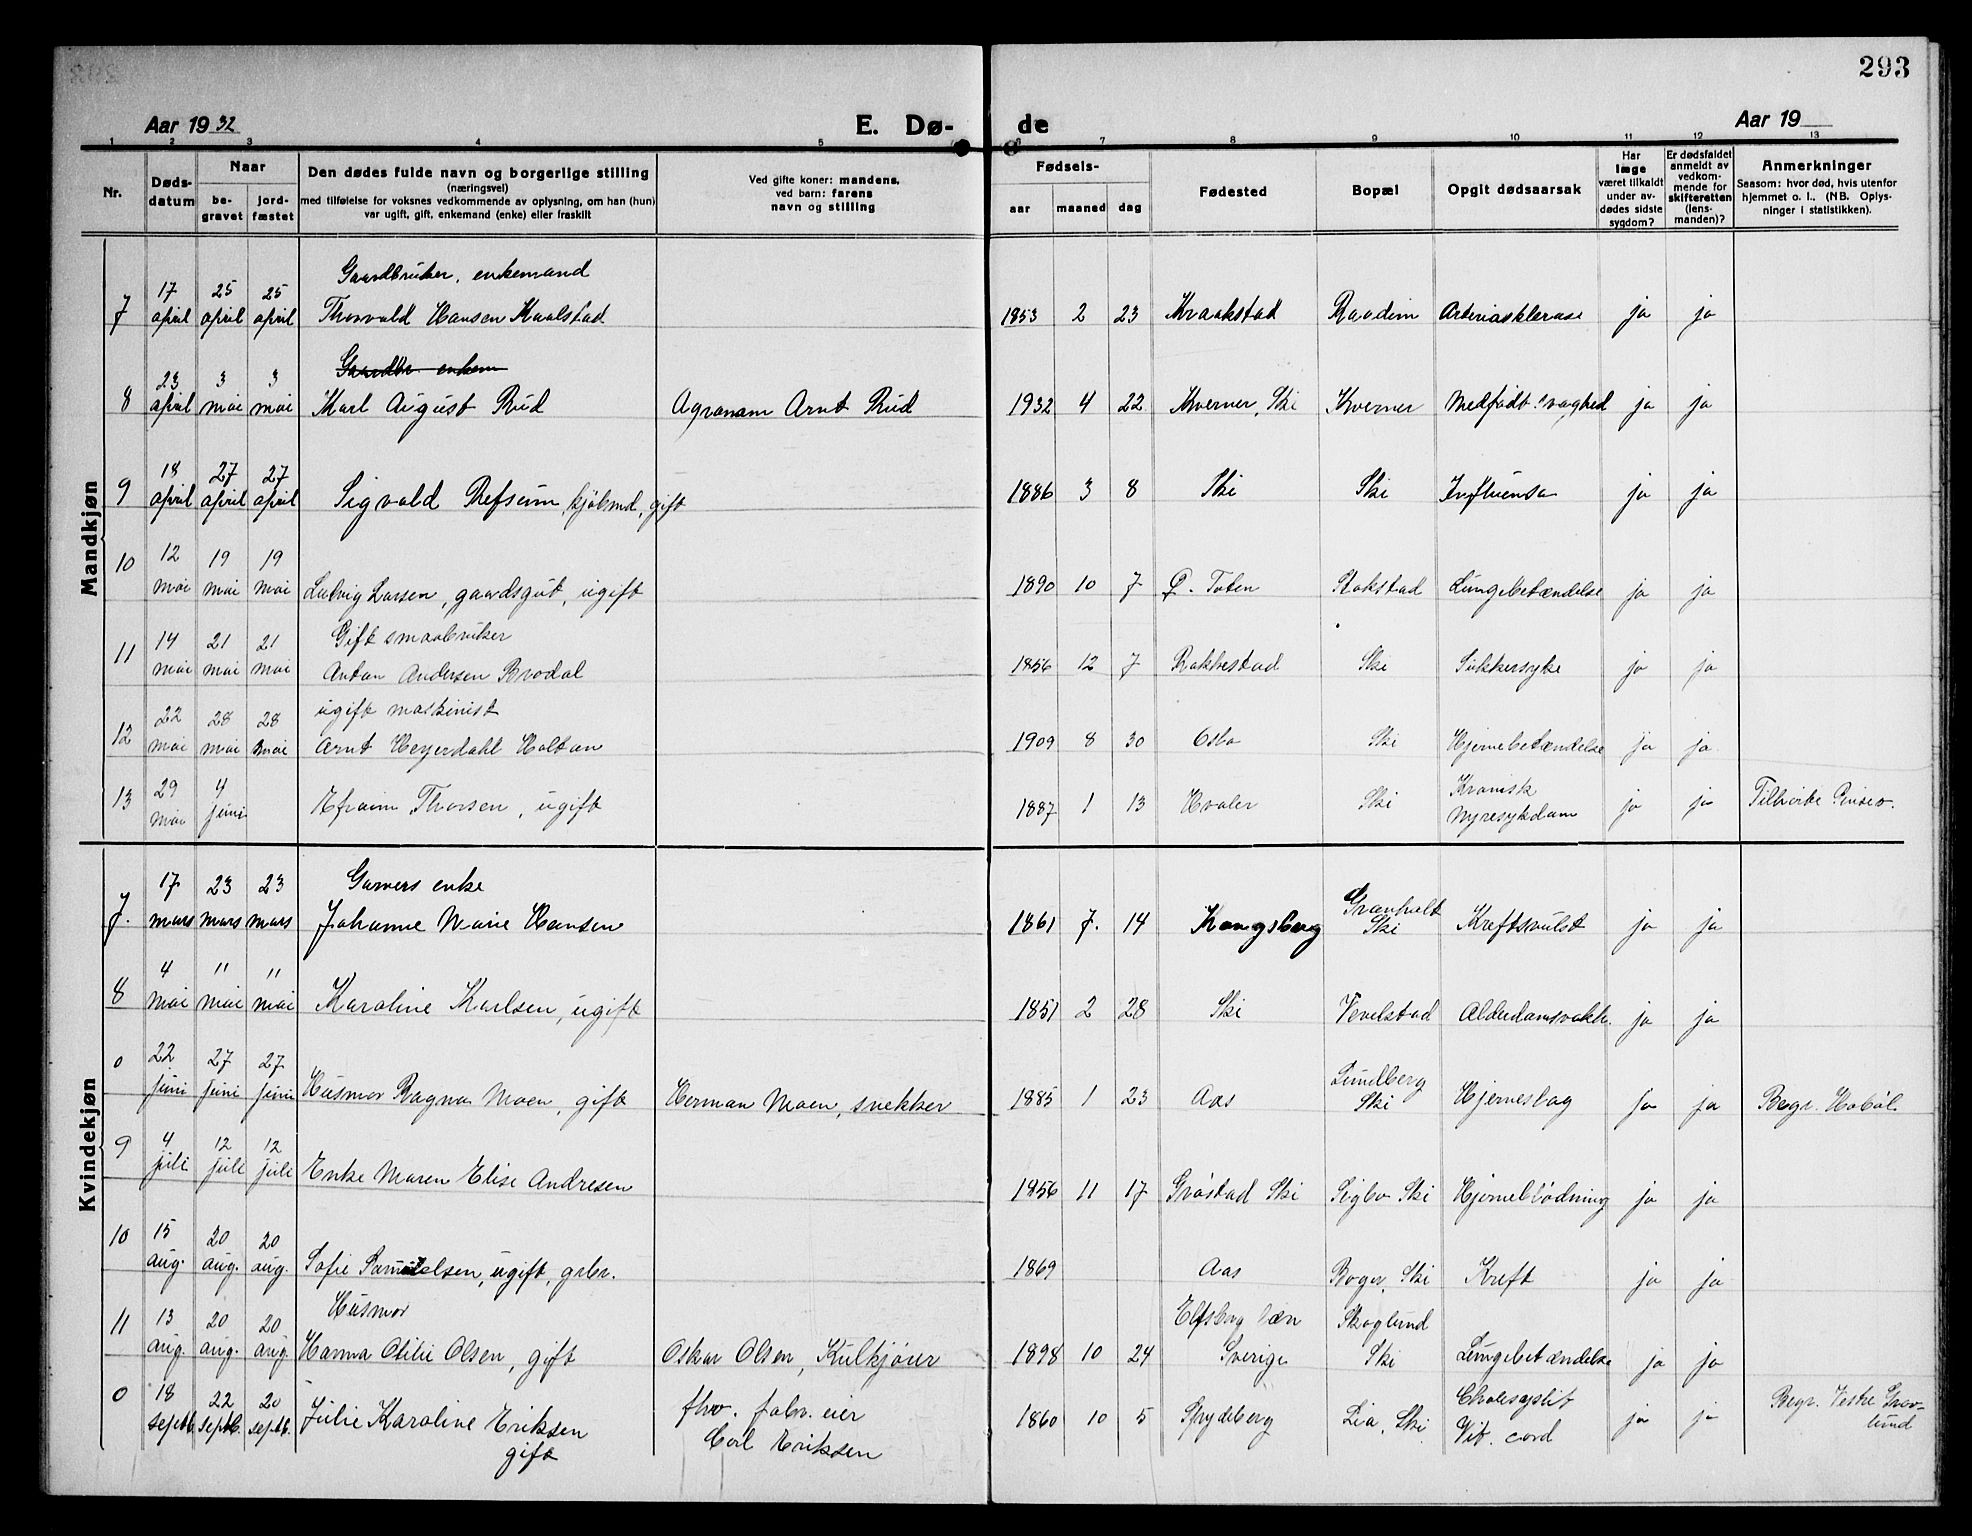 293
Aar 1932
E. Dø-
de
Aar 19
1 2 3 4 5 6 7 8 9 10 11 12 13
Nr.
Døds-
datum
Naar
be-
gravet
jord-
fæstet
Den dødes fulde navn og borgerlige stilling
(næringsvei)
med tilføielse for voksnes vedkommende av oplysning, om han (hun)
var ugift, gift, enkemand (enke) eller fraskilt
Ved gifte koner: mandens,
ved barn: farens
navn og stilling
Fødsels-
aar maaned dag
Fødested
Bopæl
Opgit dødsaarsak
Har
læge
været tilkaldt
under av-
dødes sidste
sygdom?
Er dødsfaldet
anmeldt av
vedkom-
mende for
skifteretten
(lens-
manden)?
Anmerkninger
Saasom: hvor død, hvis utenfor
hjemmet o. l.. (NB. Oplys-
ninger i statistikken).
Mandkjøn
Gaardbruker, enkemand
7 17 april 25 april 25 april Thorvald Hansen Kaalstad 1853 2 23 Kraakstad Raadim Arteriasklerose ja ja
Gaardbr. enkem
8 23 april 3 mai 3 mai Karl August Rud Agronom Arnt Rud 1932 4 22 Kverner, Ski Kverner Medfødt svaghed ja ja
9 18 april 27 april 27 april Sigvald Refsum, kjøbmd, gift 1886 3 8 Ski Ski Influensa ja ja
10 12 mai 19 mai 19 mai Ludvig Larsen, gaardsgut, ugift 1890 10 7 Ø. Toten Stokstad Lungebetændelse ja ja
Gift smaabruker
11 14 mai 21 mai 21 mai Anton Andersen Brodal 1856 12 7 Rakkestad Ski Sukkersyke ja ja
ugift maskinist
12 22 mai 28 mai 28 mai Arnt Heyerdahl Holtan 1909 8 30 Oslo Ski Hjernebetændelse ja ja
13 29 mai 4 juni Efraim Thorsen, ugift 1887 1 13 Hvaler Ski Kronisk
Nyresykdom ja ja Tilhørte Pinsev.
Kvindekjøn
Garvers enke
7. 17 mars 23 mars 23 mars Johanne Marie Hansen 1861 7. 14 Kongsberg Granholt
Ski Kreftsvulst ja ja
8 4 mai 11 mai 11 mai Karoline Karlsen, ugift 1851 2 28 Ski Vevelstad Alderdomsvakh. ja ja
0 22 juni 27 juni 27 juni Husmor Ragna Moen, gift Herman Moen, snekker 1885 1 23 Aas Lundberg
Ski Hjerneslag ja ja Begr. Hobøl.
9 4 juli 12 juli 12 juli Enke Maren Elise Andresen 1856 11 17 Grøstad Ski Sigbo Ski Hjerneblødning ja ja
10 15 aug. 20 aug. 20 aug. Sofie Samuelsen, ugift, grbr. 1869 Aas Roger, Ski Kreft ja ja
Husmor
11 13 aug. 20 aug. 20 aug. Hanna Otilie Olsen, gift Oskar Olsen, Kulkjører 1898 10 24 Elfsborg læn
Sverige Skoglund
Ski Lungebetændelse ja ja
0 18 septb. 22 septb. 20 septb. Julie Karoline Eriksen
gift fhv. fabr. eier
Carl Eriksen 1860 10 5 Spydeberg Lia, Ski
Vit. cord ja ja Begr. Vestre Grav-
lund